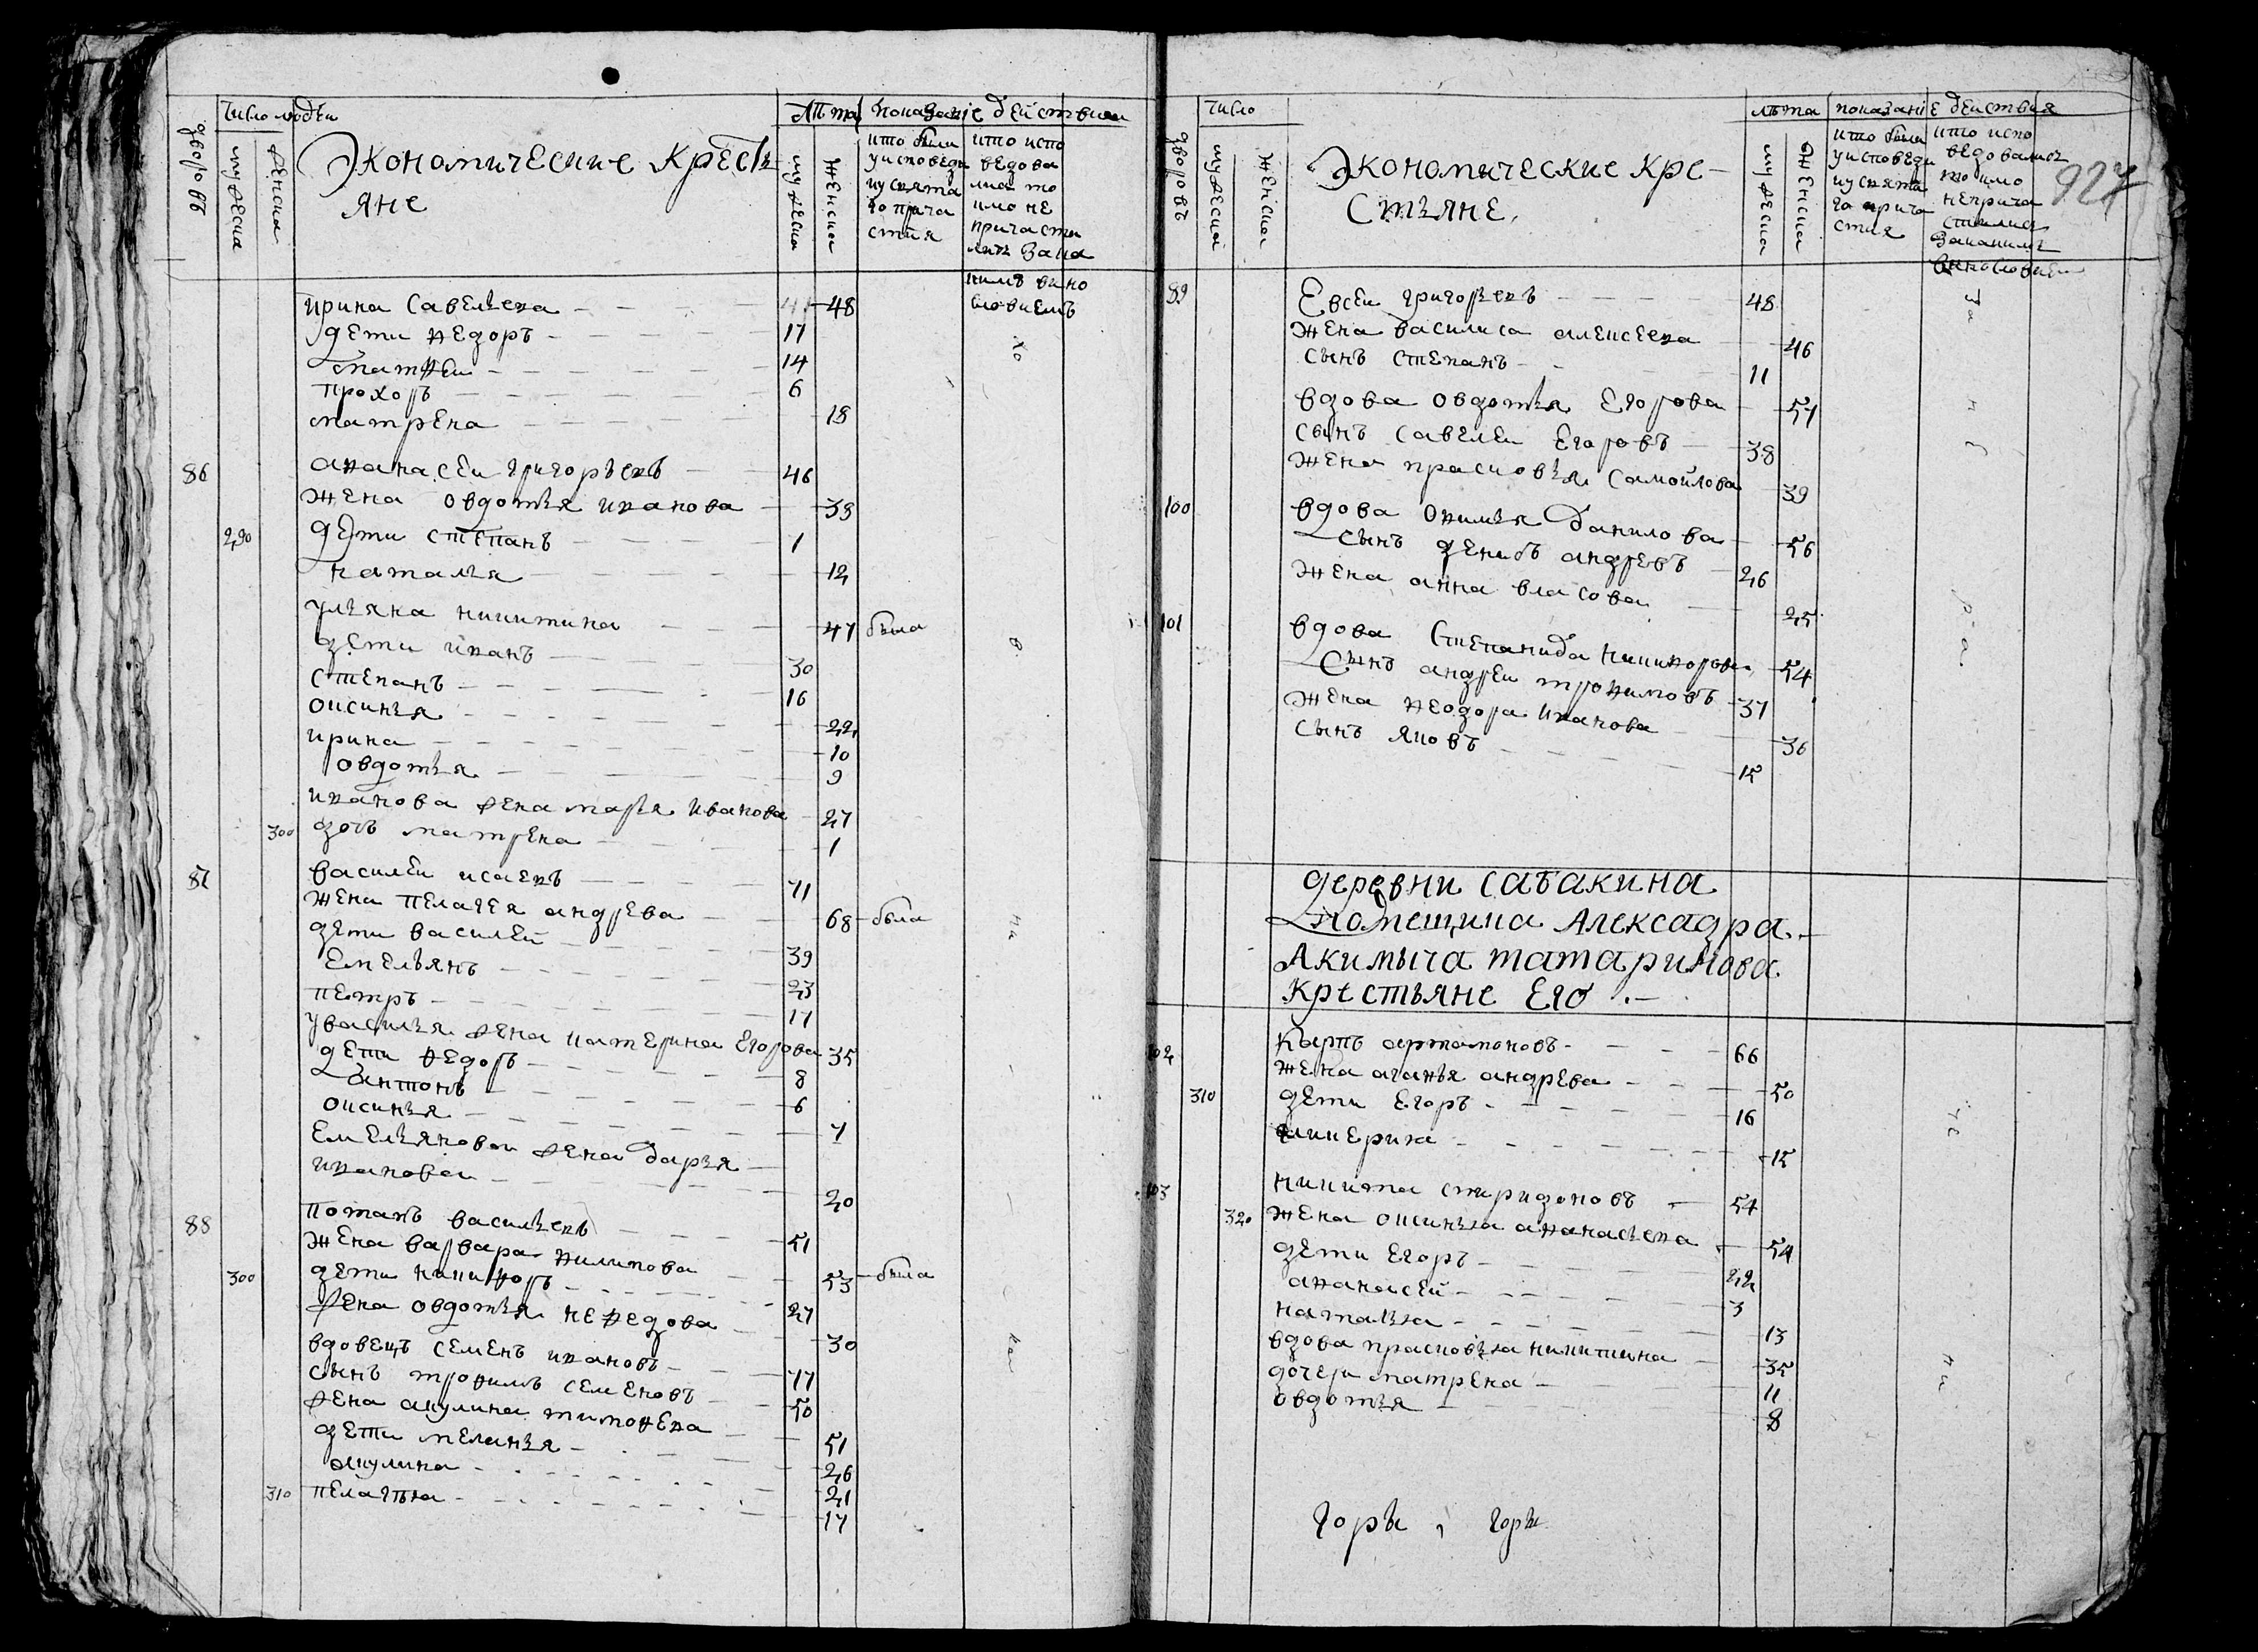 число людеи
лѣта показание действиеи
дворовъ
мужеска
женска
Экономические Кресть
яне
мужеска
женска
кто были
у исповеди
и у свята
го прича
стия
кто испо
ведова
лись то
кмо не
причасти
лись зака
кимъ вино
словиемъ
ирина Савельева 48
дети ѳедоръ 17
матѳеи 14
прохоръ 6
матрена 18
86 аѳанасеи григорьевъ 46
жена овдотья иванова 39
290 дети степанъ 1
наталья 12
ульяна никитина 47 была
дети иванъ 30
степанъ 16
оксинья 22
ирина 10
овдотья 9
иванова жена марья иванова 27
300 дочь матрена 1
87 василеи исаевъ 71
жена пелагея андрева 68 была
дети василей 39
емельянъ 23
петръ 17
у василья жена катерина егорова 35
дети ѳедоръ 8
антонъ 6
оксинья 7
емельяновои жена дарья
иванова 20
88 потапъ васильевъ 51
жена варвара ѳилипова 53 была
300 дети никиѳоръ 27
жена овдотья неѳедова 30
вдовецъ семенъ ивановъ 77
сынъ троѳимъ семеновъ 50
жена акулина тимоѳева 51
дети меланья 26
акулина 21
310 пелагѣя 17
число
лѣта показание действия
927
дворовъ
мужеска
женска
Экономические кре-
стьяне.
мужеска
женска
кто были
у исповеди
и у свята
го прича
стия
кто испо
ведовались
то кмо
не прича
стились
заканимъ
винословием
89 Евсеи григорьевъ 48
жена василиса алексеева 46
сынъ степанъ 11
вдова овдотья Егорова 57
сынъ савелеи Егоровъ 38
жена прасковья самойлова 39
100 вдова Оѳимья данилова 56
сынъ денисъ андревъ 26
жена анна власова 25
101 вдова степанида никиѳорова 54
сынъ андреи троѳимовъ 37
жена ѳеодора иванова 36
сынъ яковъ 15
деревни сабакина
помещика Алексадра
Акимыча татаринова
крестьяне Его
102 Карпъ артамоновъ 66
жена агаѳья андрева 50
310 дети Егоръ 16
15
103 никита спиридоновъ 54
320 жена оксинья аѳанасьева 54
дети Егоръ 22
аѳанасей 3
наталья 13
вдова прасковья никитина 35
дочери матрена 11
овдотья 8
горы , горы